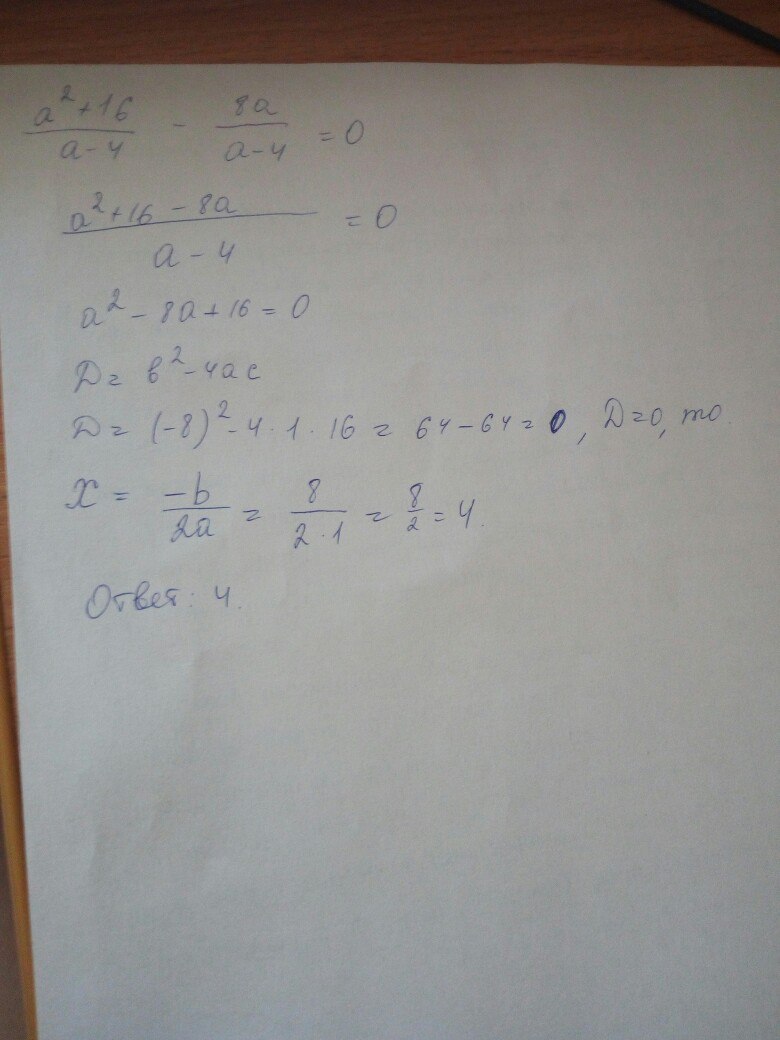 a²+16/a-4 - 8a/a-4 = 0
a²+16-8a/a-4 = 0
a²-8a+16=0
D= b²-4ac
D= (-8)²-4·1·16 = 64-64=0, D=0, то.
X = -b/2a = 8/2·1 = 8/2 = 4.
Ответ: 4.